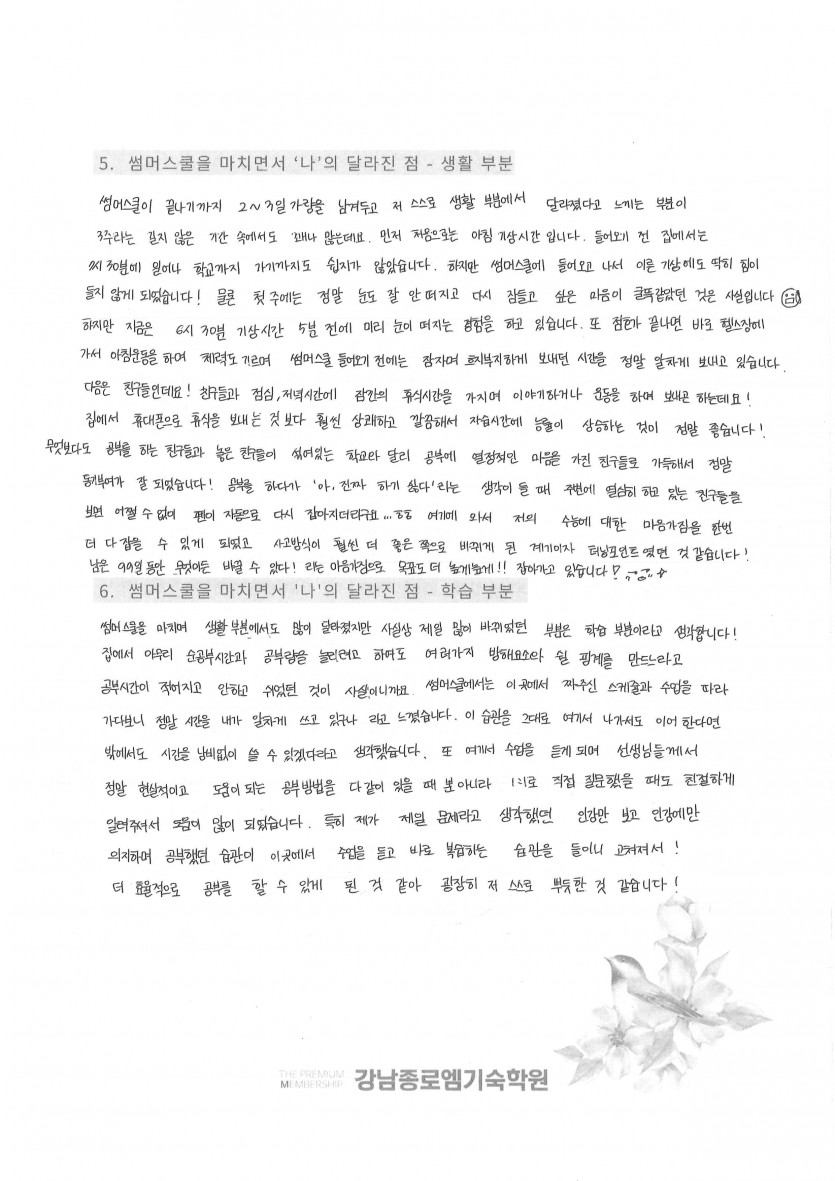 5. 썸머스쿨을 마치면서 ‘나’의 달라진 점 - 생활 부분
썸머스쿨이 끝나기까지 2~3일 가량을 남겨두고 저 스스로 생활 부분에서 달라졌다고 느끼는 부분이
3주라는 길지 않은 기간 속에서도 꽤나 많은데요. 먼저 처음으로는 아침 기상시간 입니다. 들어오기 전 집에서는
30분에 일어나 학교까지 가기까지도 쉽지가 않았습니다. 하지만 썸머스쿨에 들어오고 나서 이른 기상에도 딱히 힘이
들지 않게 되었습니다! 물론 첫 주에는 정말 눈도 잘 안 떠지고 다시 잠들고 싶은 마음이 굴뚝같았던 것은 사실입니다
하지만 지금은 6시 30분 기상시간 5분 전에 미리 눈이 떠지는 경험을 하고 있습니다. 또 점호가 끝나면 바로 헬스장에
가서 아침운동을 하며 체력도 기르며 썸머스쿨 들어오기 전에는 잠자며 흐지부지하게 보내던 시간을 정말 알차게 보내고 있습니다.
다음은 친구들인데요! 친구들과 점심, 저녁시간에 잠깐의 휴식시간을 가지며 이야기하거나 운동을 하며 보내곤 하는데요!
집에서 휴대폰으로 휴식을 보내는 것보다 훨씬 상쾌하고 깔끔해서 자습시간에 능률이 상승하는 것이 정말 좋습니다!
무엇보다도 공부를 하는 친구들과 놓은 친구들이 섞여있는 학교와 달리 공부에 열정적인 마음을 가진 친구들로 가득해서 정말
동기부여가 잘 되었습니다! 공부를 하다가 '아, 진짜 하기 싫다'라는 생각이 들 때 주변에 열심히 하고 있는 친구들을
보면 어쩔 수 없이 펜이 자동으로 다시 잡아지더라구요...ㅎㅎ 여기에 와서 저의 수능에 대한 마음가짐을 한번
더 다잡을 수 있게 되었고 사고방식이 훨씬 더 좋은 쪽으로 바뀌게 된 계기이자 터닝포인트 였던 것 같습니다!
남은 99일 동안 무엇이든 바뀔 수 있다! 라는 마음가짐으로 목표도 더 높게높게!! 잡아가고 있습니다!
6. 썸머스쿨을 마치면서 '나'의 달라진 점 - 학습 부분
썸머스쿨을 마치며 생활 부분에서도 많이 달라졌지만 사실상 제일 많이 바뀌었던 부분은 학습 부분이라고 생각합니다!
집에서 아무리 순공부시간과 공부량을 늘리려고 하여도 여러가지 방해요소와 쉴 핑계를 만드느라고
공부시간이 적어지고 안하고 쉬었던 것이 사실이니까요. 썸머스쿨에서는 이곳에서 짜주신 스케줄과 수업을 따라
가다보니 정말 시간을 내가 알차게 쓰고 있구나 라고 느꼈습니다. 이 습관을 그대로 여기서 나가서도 이어 한다면
밖에서도 시간을 낭비없이 쓸 수 있겠다라고 생각했습니다. 또 여기서 수업을 듣게 되며 선생님들께서
정말 현실적이고 도움이 되는 공부방법을 다같이 있을 때 뿐 아니라 1:1로 직접 질문했을 때도 친절하게
알려주셔서 도움이 많이 되었습니다. 특히 제가 제일 문제라고 생각했던 인강만 보고 인강에만
의지하며 공부했던 습관이 이곳에서 수업을 듣고 바로 복습하는 습관을 들이니 고쳐져서!
더 효율적으로 공부를 할 수 있게 된 것 같아 굉장히 저 스스로 뿌듯한 것 같습니다!
THE PREMIUM
MEMBERSHIP 강남종로엠기숙학원